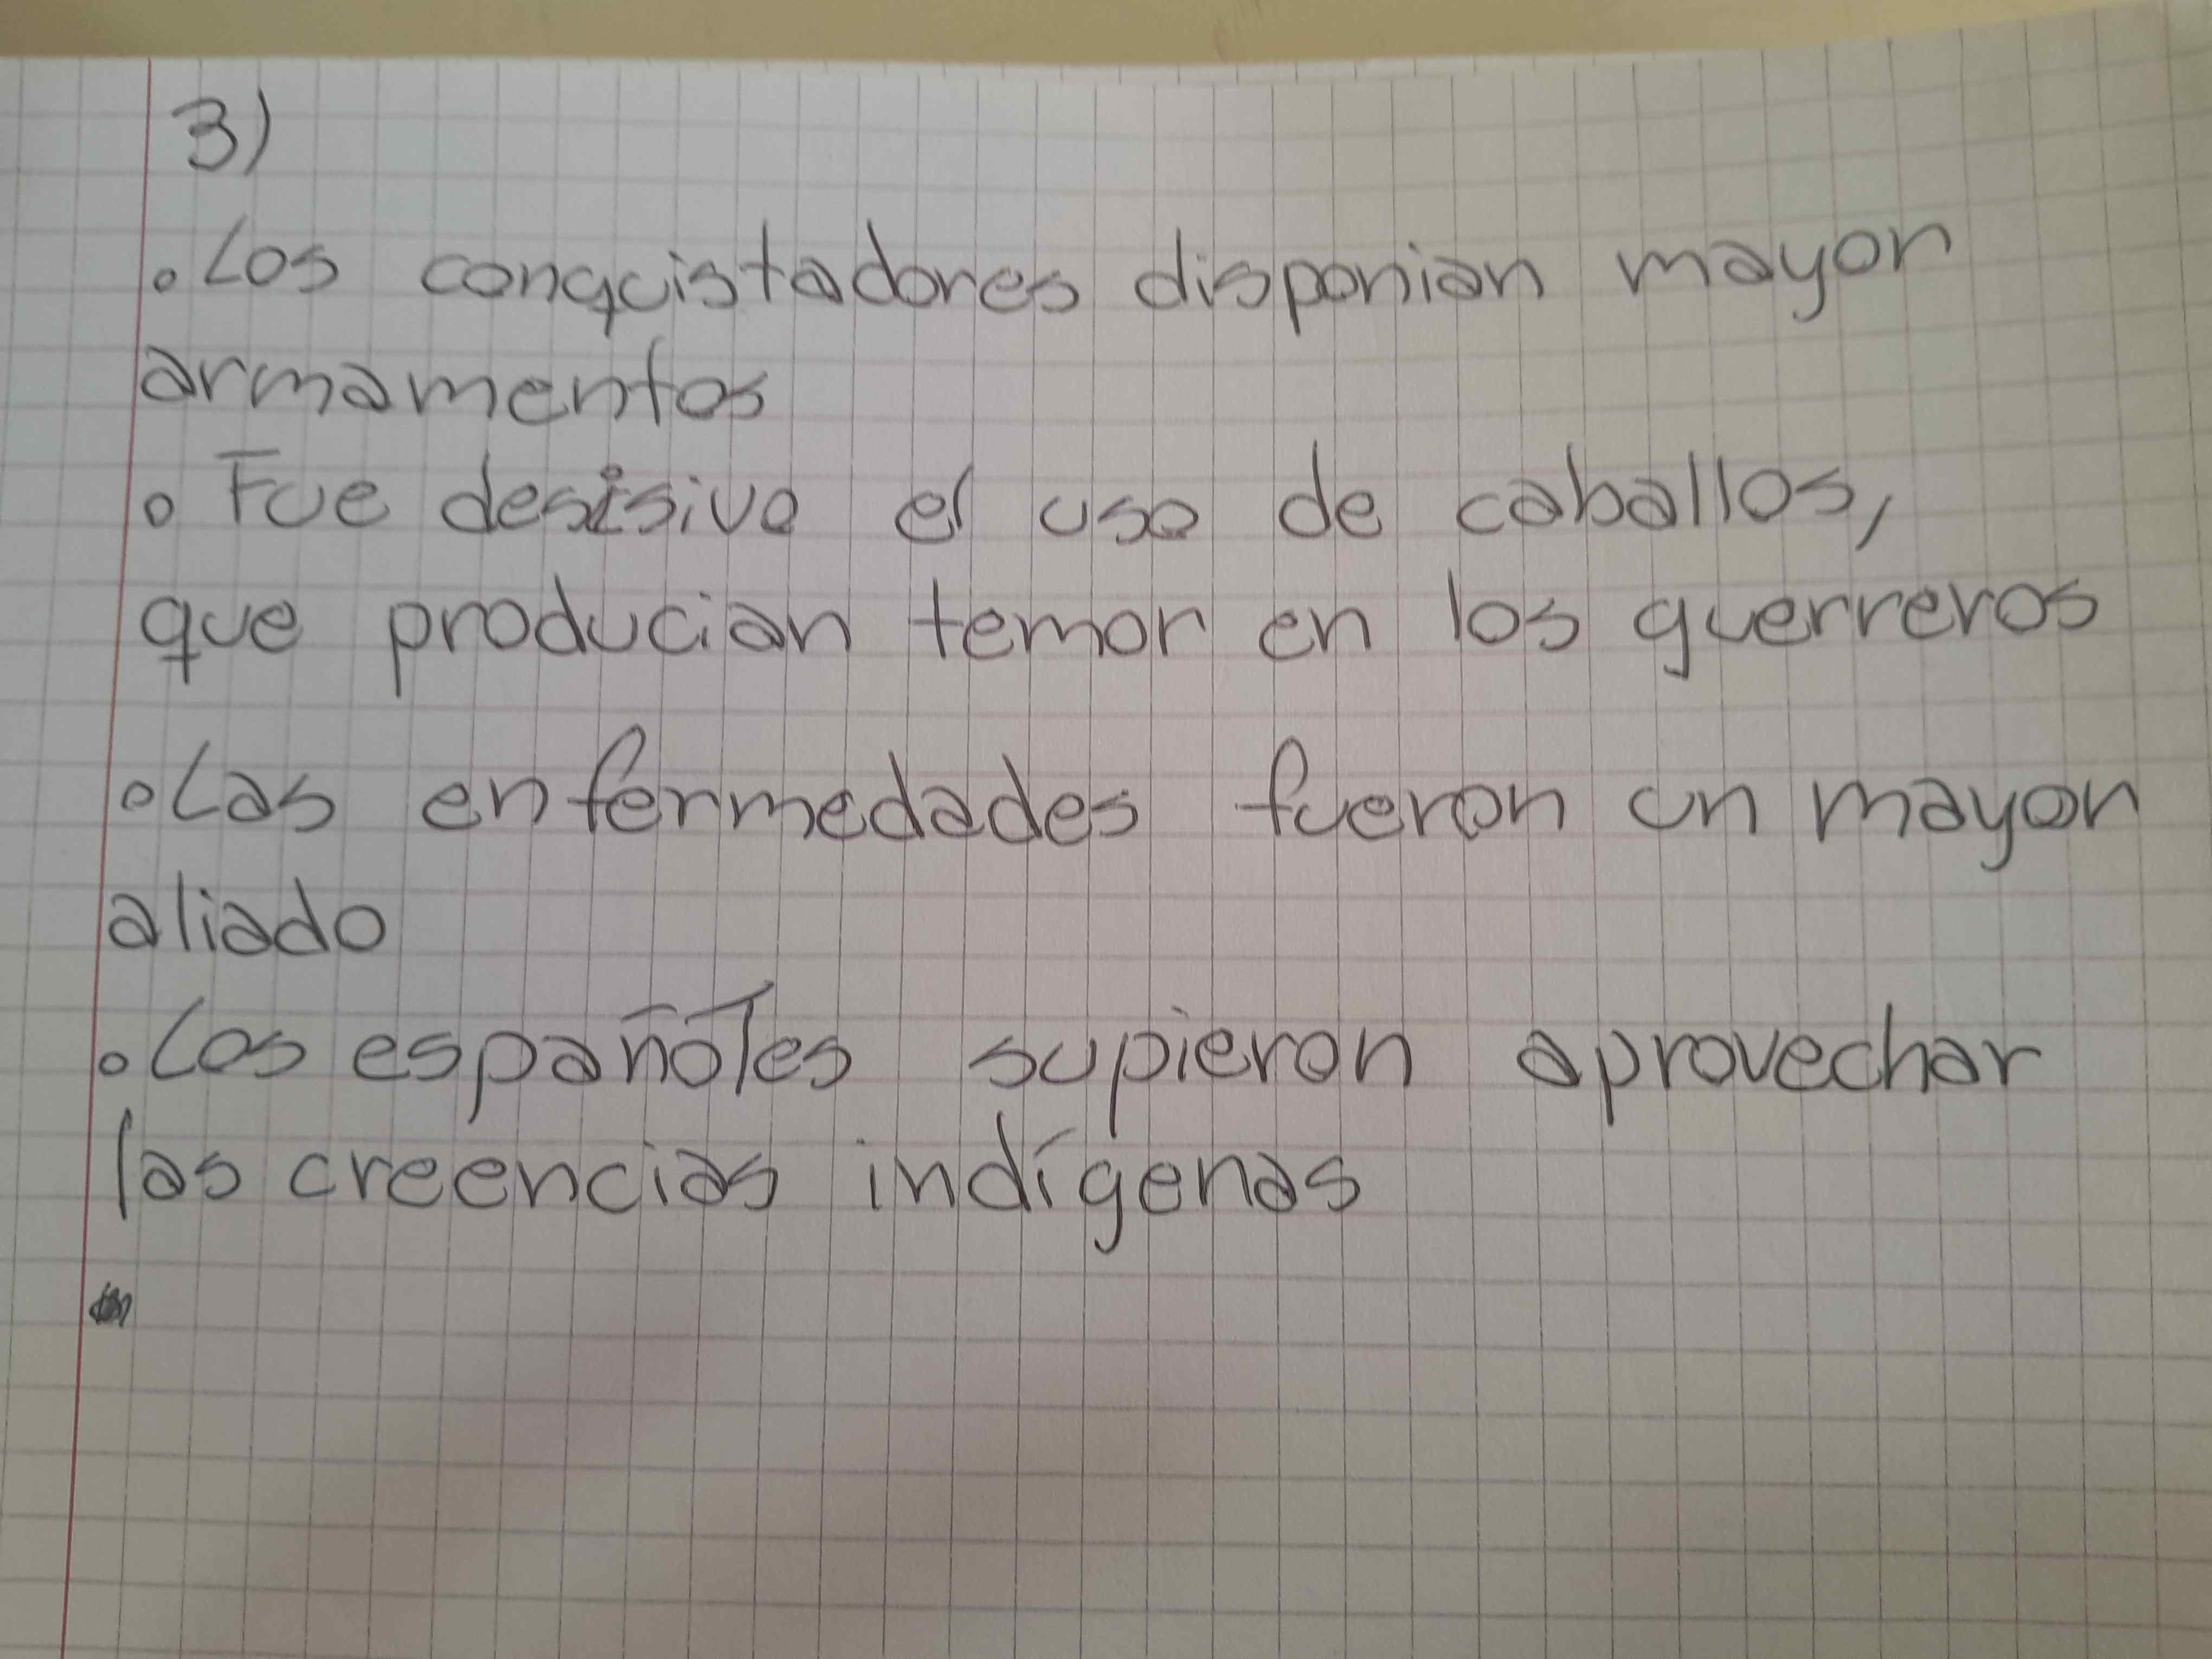 3)
• Los conquistadores disponian mayor
armamentos
• Fue desisivo el uso de caballos,
que producian temor en los guerreros
• Las enfermedades fueron un mayor
aliado
• Los españoles supieron aprovechar
las creencias indígenas